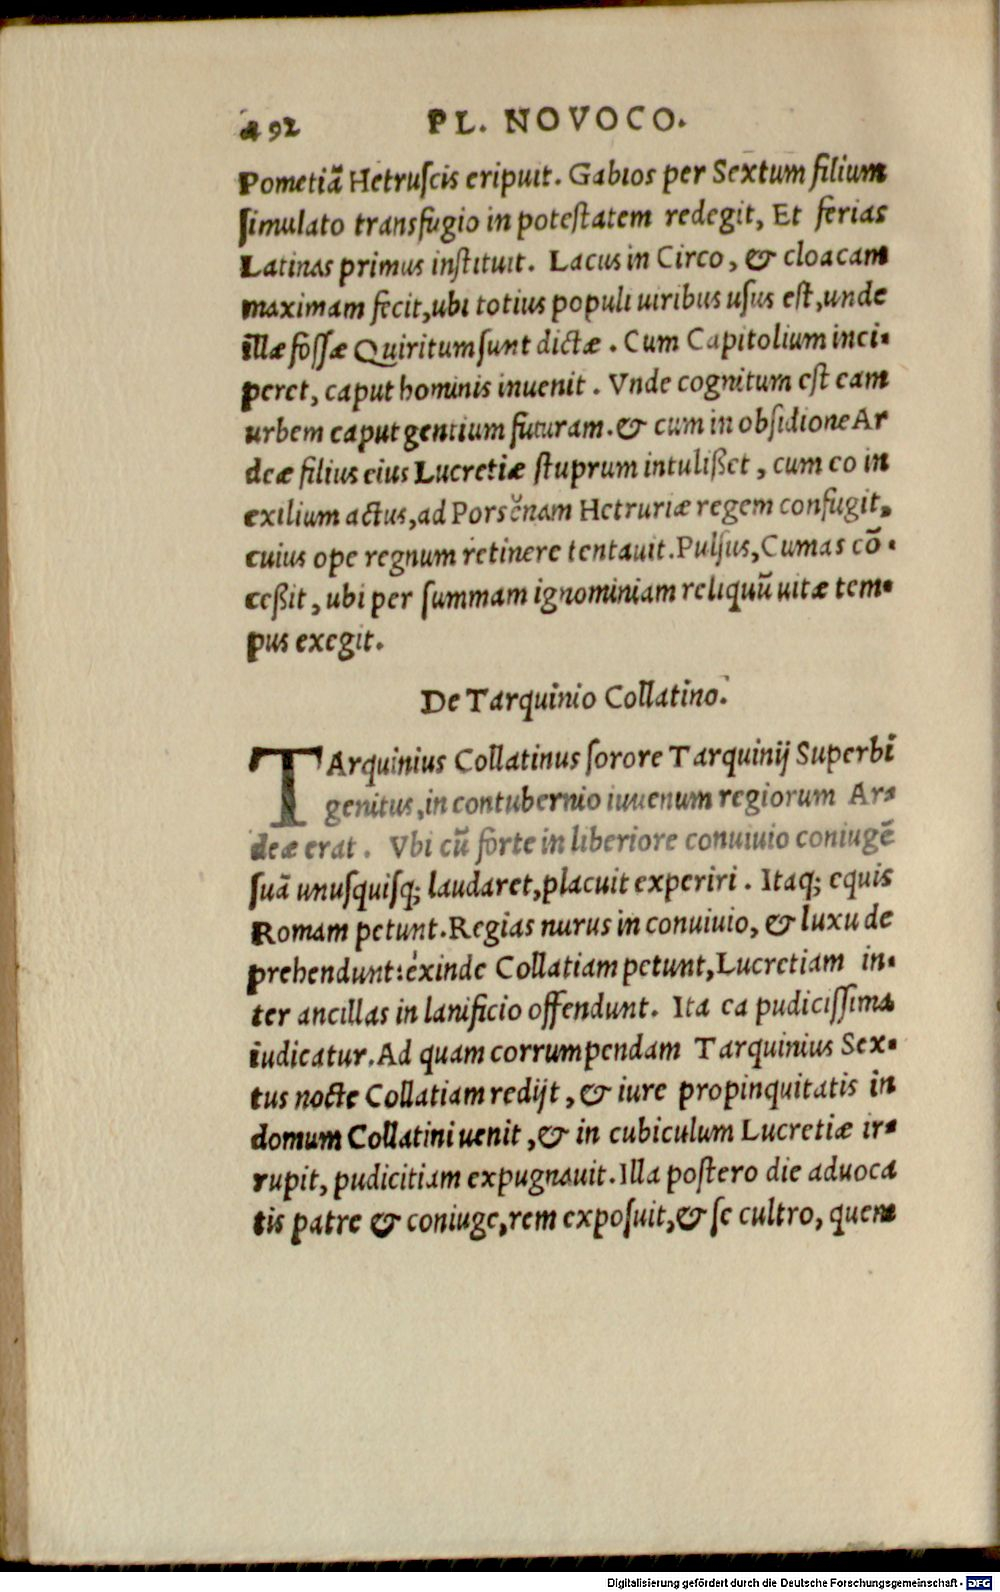 492 PL. NOVOCO.
Pometiā Hetruſcis eripuit. Gabios per Sextum filium
ſimulato transfugio in poteſtatem redegit, Et ferias
Latinas primus inſtituit. Lacus in Circo, & cloacam
maximam fecit, ubi totius populi uiribus uſus eſt, unde
illæ foſſæ Quiritum ſunt dictæ. Cum Capitolium inci-
peret, caput hominis inuenit. Vnde cognitum eſt eam
urbem caput gentium futuram. & cum in obſidione Ar
deæ filius eius Lucretiæ ſtuprum intulißet, cum eo in
exilium actus, ad Porsēnam Hetruriæ regem confugit,
cuius ope regnum retinere tentauit. Pulſus, Cumas cō-
ceßit, ubi per ſummam ignominiam reliquū uitæ tem-
pus exegit.
De Tarquinio Collatino.
TArquinius Collatinus ſorore Tarquinij Superbi
genitus, in contubernio iuuenum regiorum Ar-
deæ erat. Vbi cū forte in liberiore conuiuio coniugē
ſuā unuſquiſq; laudaret, placuit experiri. Itaq; equis
Romam petunt. Regias nurus in conuiuio, & luxu de
prehendunt: exinde Collatiam petunt, Lucretiam in-
ter ancillas in lanificio offendunt. Ita ea pudiciſſima
iudicatur. Ad quam corrumpendam Tarquinius Sex-
tus nocte Collatiam redijt, & iure propinquitatis in
domum Collatini uenit, & in cubiculum Lucretiæ ir-
rupit, pudicitiam expugnauit. Illa poſtero die aduoca
tis patre & coniuge, rem expoſuit, & ſe cultro, quem
Digitalisierung gefördert durch die Deutsche Forschungsgemeinschaft - DFG